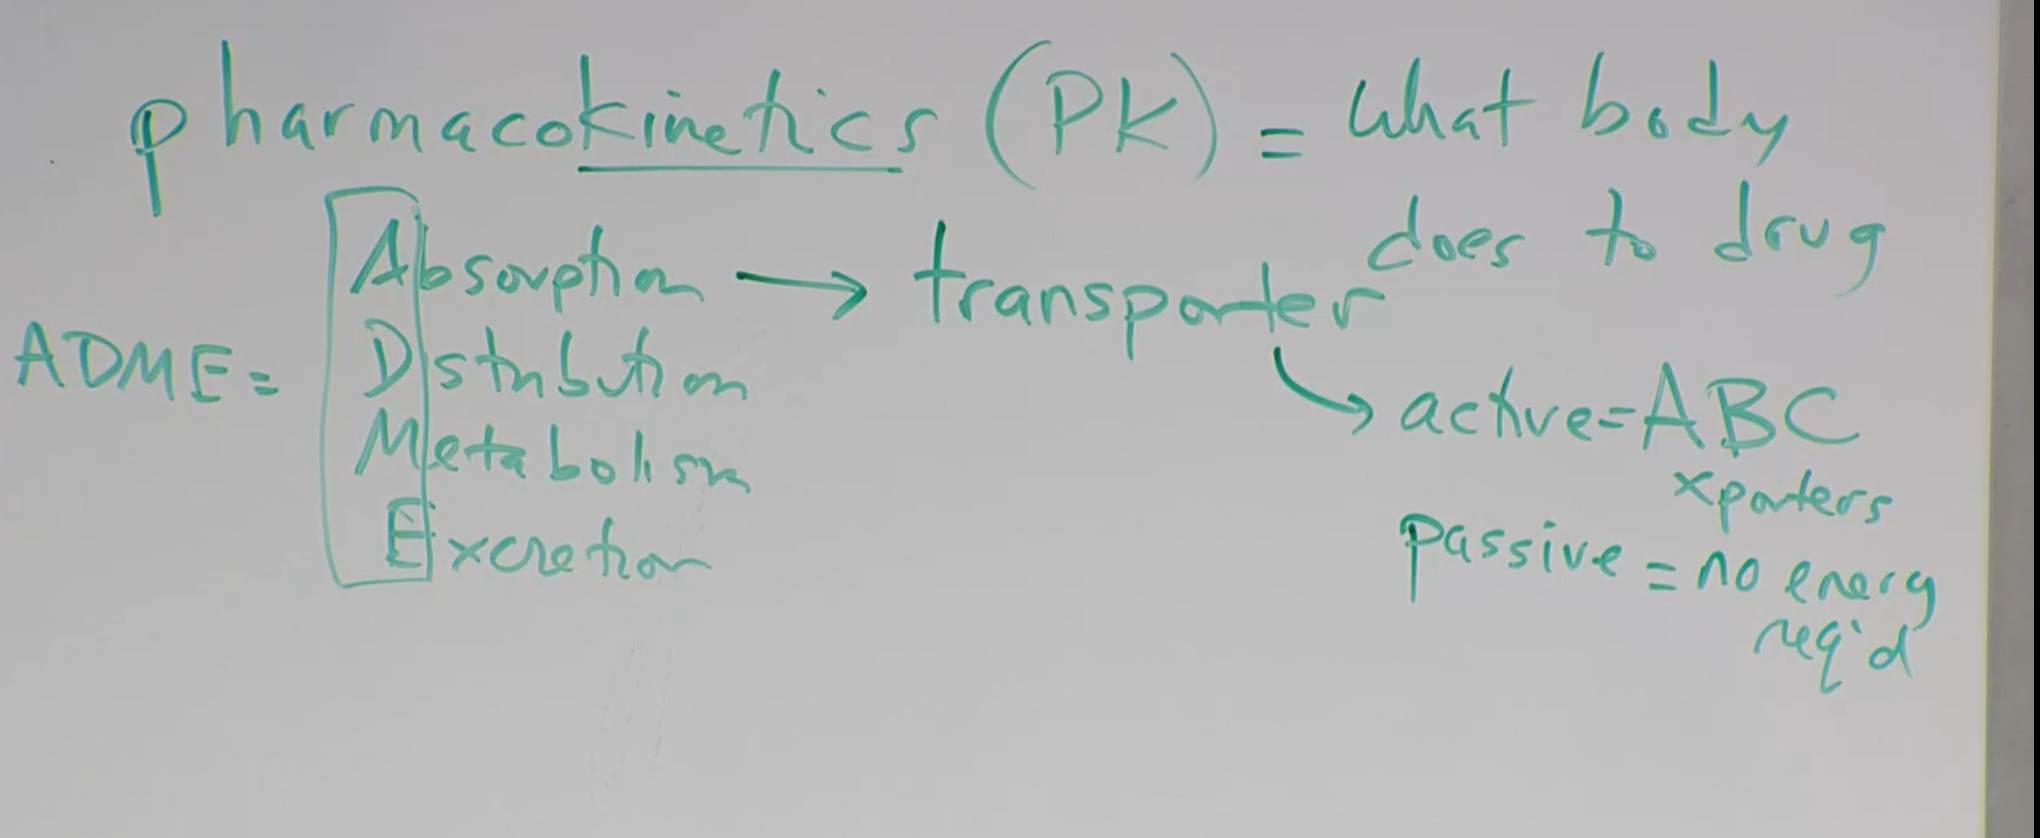 pharmacokinetics (PK) = what body
does to drug
ADME =
Absorption → transporter
Distribution
Metabolism
Excretion
active = ABC
xporters
passive = no energy
req'd